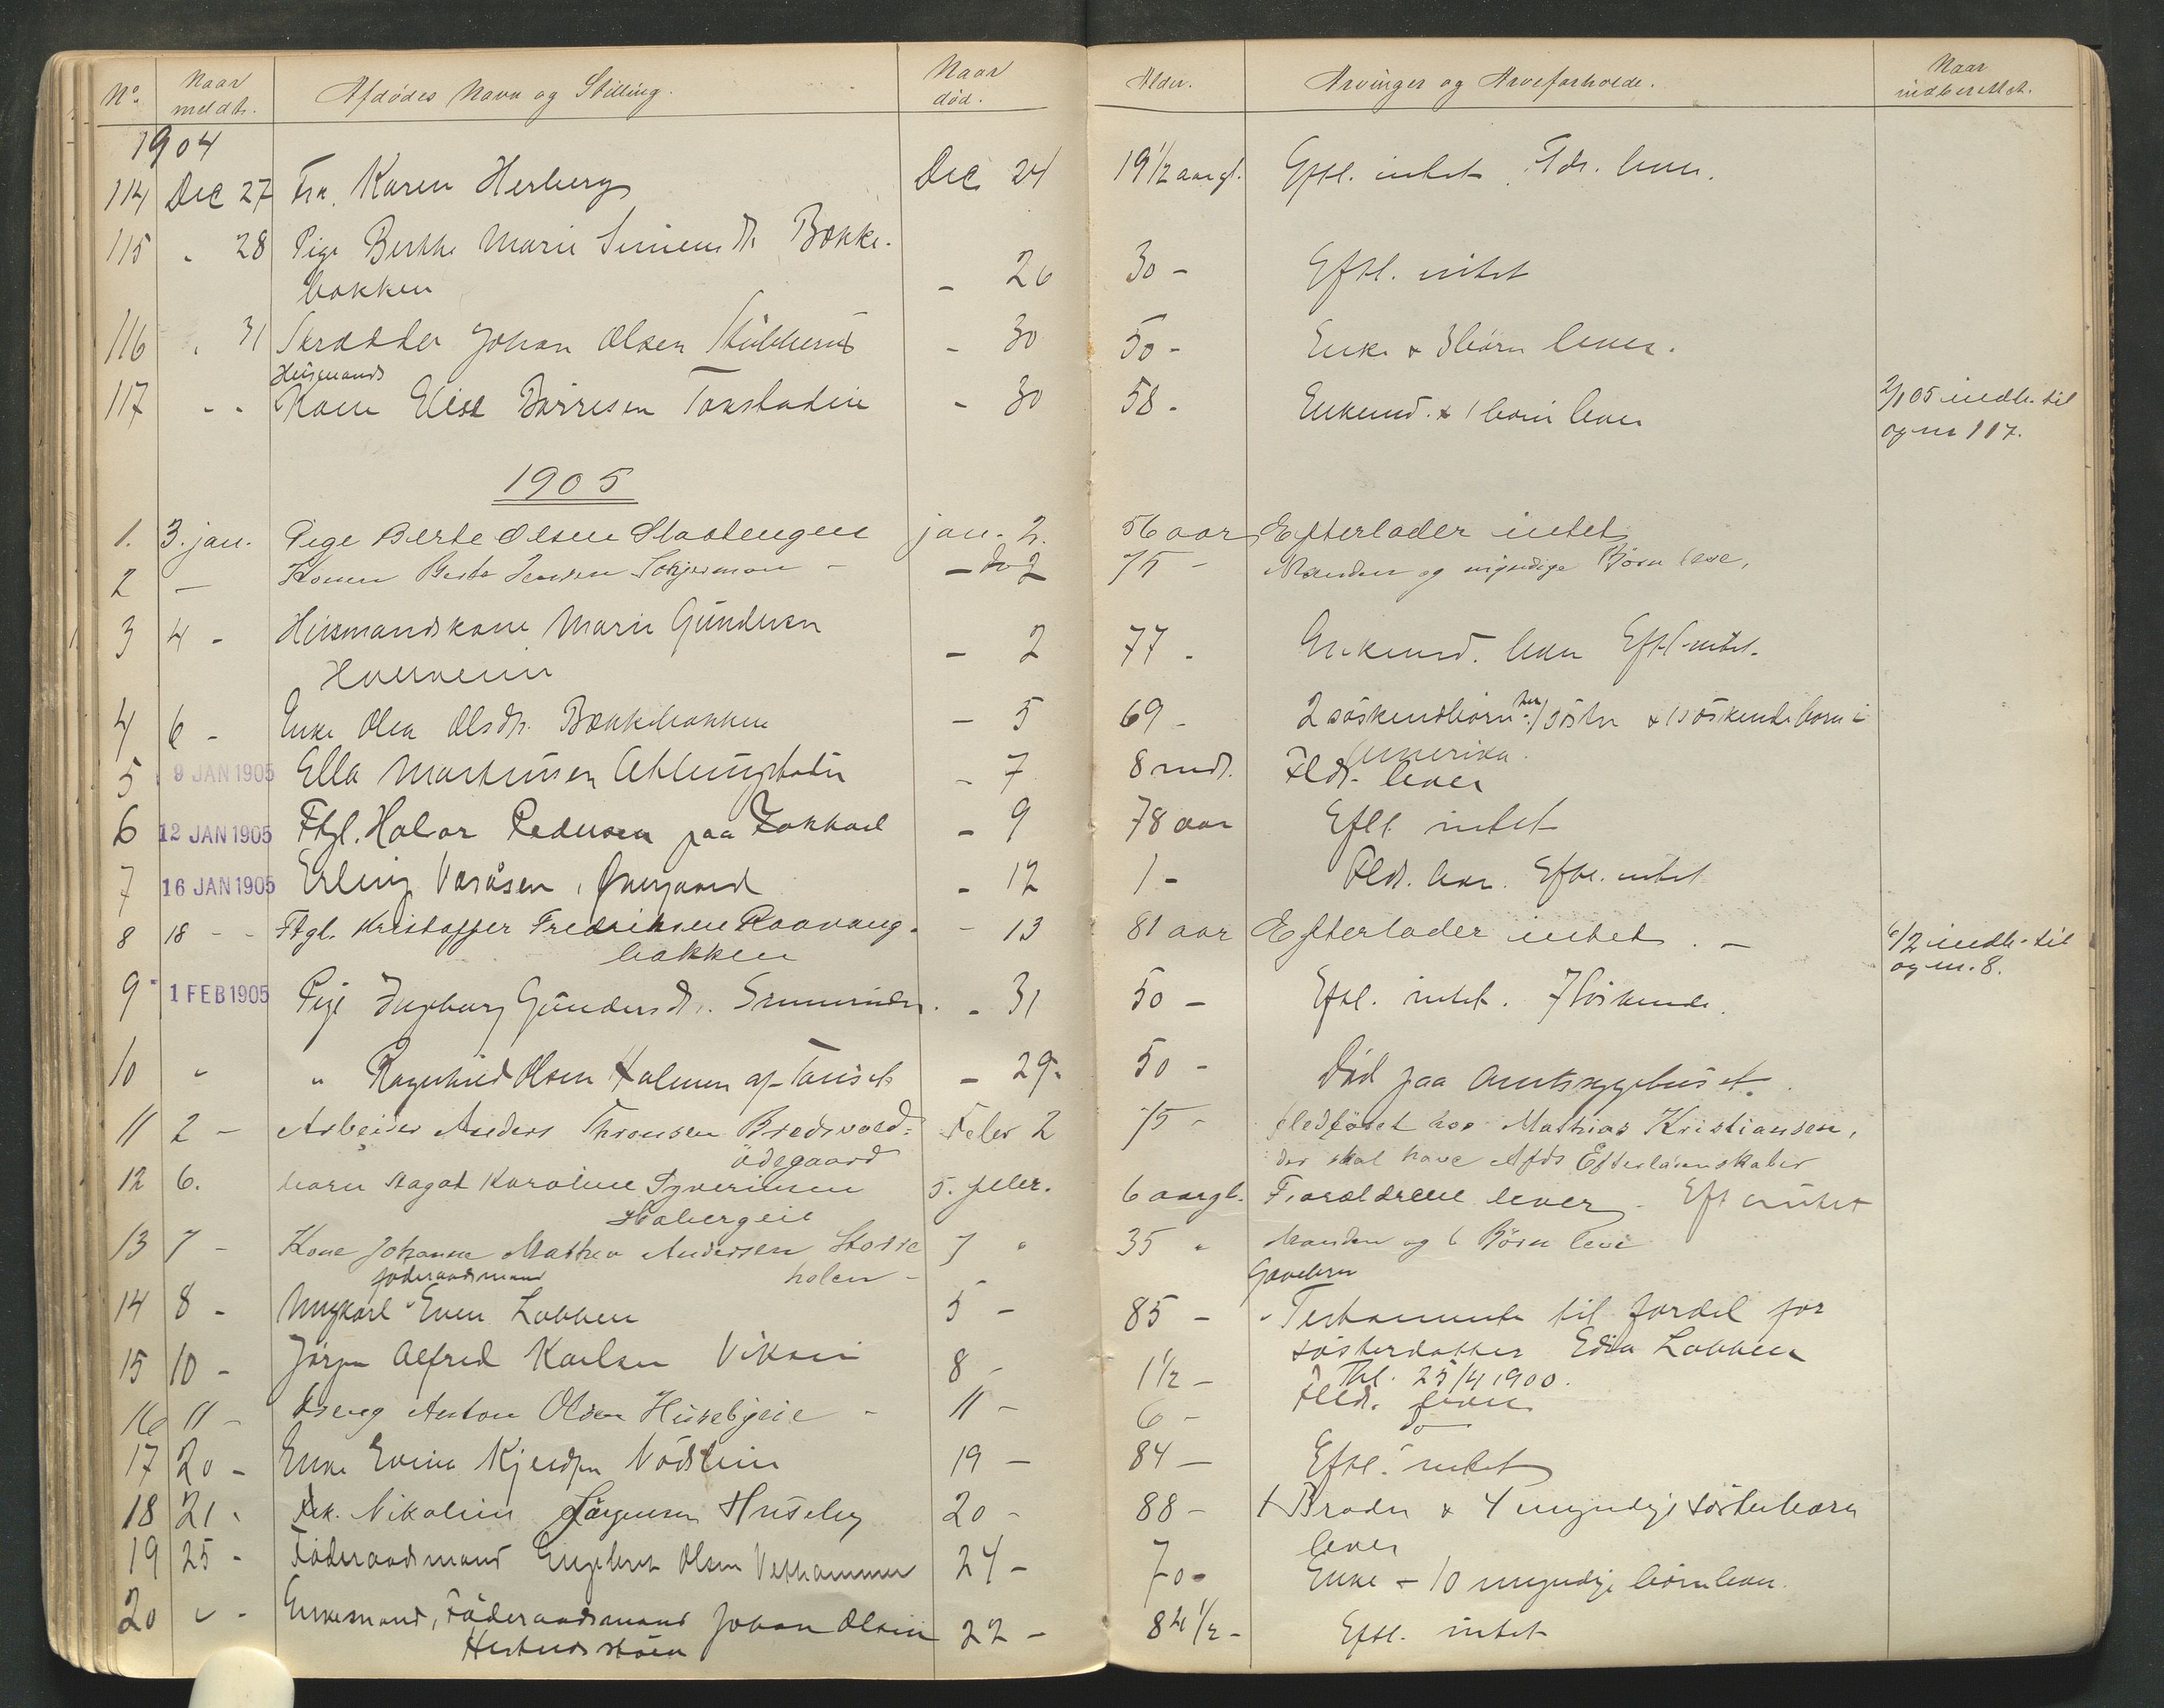 No. Naar meldt. Afdødes Navn og Stilling. Naar død. Alder. Arvinger og Arveforholde. Naar indberettet.
1904
114 Dec 27 Frk. Karen Herberg Dec 24 19 1/2 aar gl. Eftl. intet. Fdr. lever.
115 " 28 Pige Berthe Marie Simensdtr. Bække-
bakken - 26 30 - Eftl. intet
116 " 31 Skrædder Johan Olsen Stubberud - 30 50 - Enke & 3 børn lever.
Husmands
117 " " Kone Elise Børresen - 30 58 - Enkemd. & 1 barn lever 2/1 05 indb. til
og m 117.
1905
1. 3. jan. Pige Berte Olsen Slaatengen jan. 2. 56 aar Efterlader intet
2 - Konen Berte Jensen - do 2 75 - Manden og myndige Børn leve,
3 4 - Husmandskone Marie Gundersen - 2 77 - Enkemd. lever Eftl. intet.
Hvervenin
4 6 - Enke Olea Olsdtr. Bækkebakken - 5 69 - 2 søskendebørn her, 1 søster & 1 søskendebarn i
Amerika.
5 9 JAN 1905 Ella Martinsen - 7 8 mdr. Fldr. lever
6 12 JAN 1905 Ftgl. Halvor Pedersen paa - 9 78 aar Eftl. intet
7 16 JAN 1905 Erling - 12 1 - Fldr. lever. Eftl. intet
8 18 - - Ftgl. Kristoffer Fredriksen Raavang- - 13 81 aar Efterlader intet. - 6/2 indb. til
bakken og m. 8.
9 1 FEB 1905 Pige Ingeborg Gundersdtr. - 31 50 - Eftl. intet. 7 Søskende.
10 " " Ragnhild Olsen Holmen af - 29 50 - Død paa Amtssygehuset.
11 2 - Arbeider Anders Thronsen Bredvold- Febr 2 75 - fledføret hos Mathias Kristiansen,
ødegaard der skal have Afds Efterladenskaber
12 6. barn Aagot Karoline Syverinsen 5. febr. 6 aar gl. Foræeldrene lever. Eft intet
Habergeie
13 7 - Kone Johanne Mathea Andersen Storre 7 " 35 " Manden og 6 Børn leve
holen -
føderaadsmand Gavebrev
14 8 - Ungkarl Even Løbben 5 - 85 - - Testamente til fordel for
søsterdatter Løbben
Thl. 25/4 1900.
15 10 - Jørgen Alfred Karlsen Viksei 8 - 1 1/2 - Fldr. lever
16 11 - Dreng Anton Olsen Husebyeie - 11 - 6 - do
17 20 - Enke 19 - 84 - Eftl. intet
18 21 - Nikoline Jørgensen Huseby 20 - 88 - 1 Broder & 4 myndige søsterbørn
lever
19 25 - Føderaadsmand Engebret Olsen Vethammer 24 - 70 - Enke + 10 myndige børn lever.
20 " - Enkemand, Føderaadsmand Johan Olsen 22 - 84 1/2 - Eftl. intet